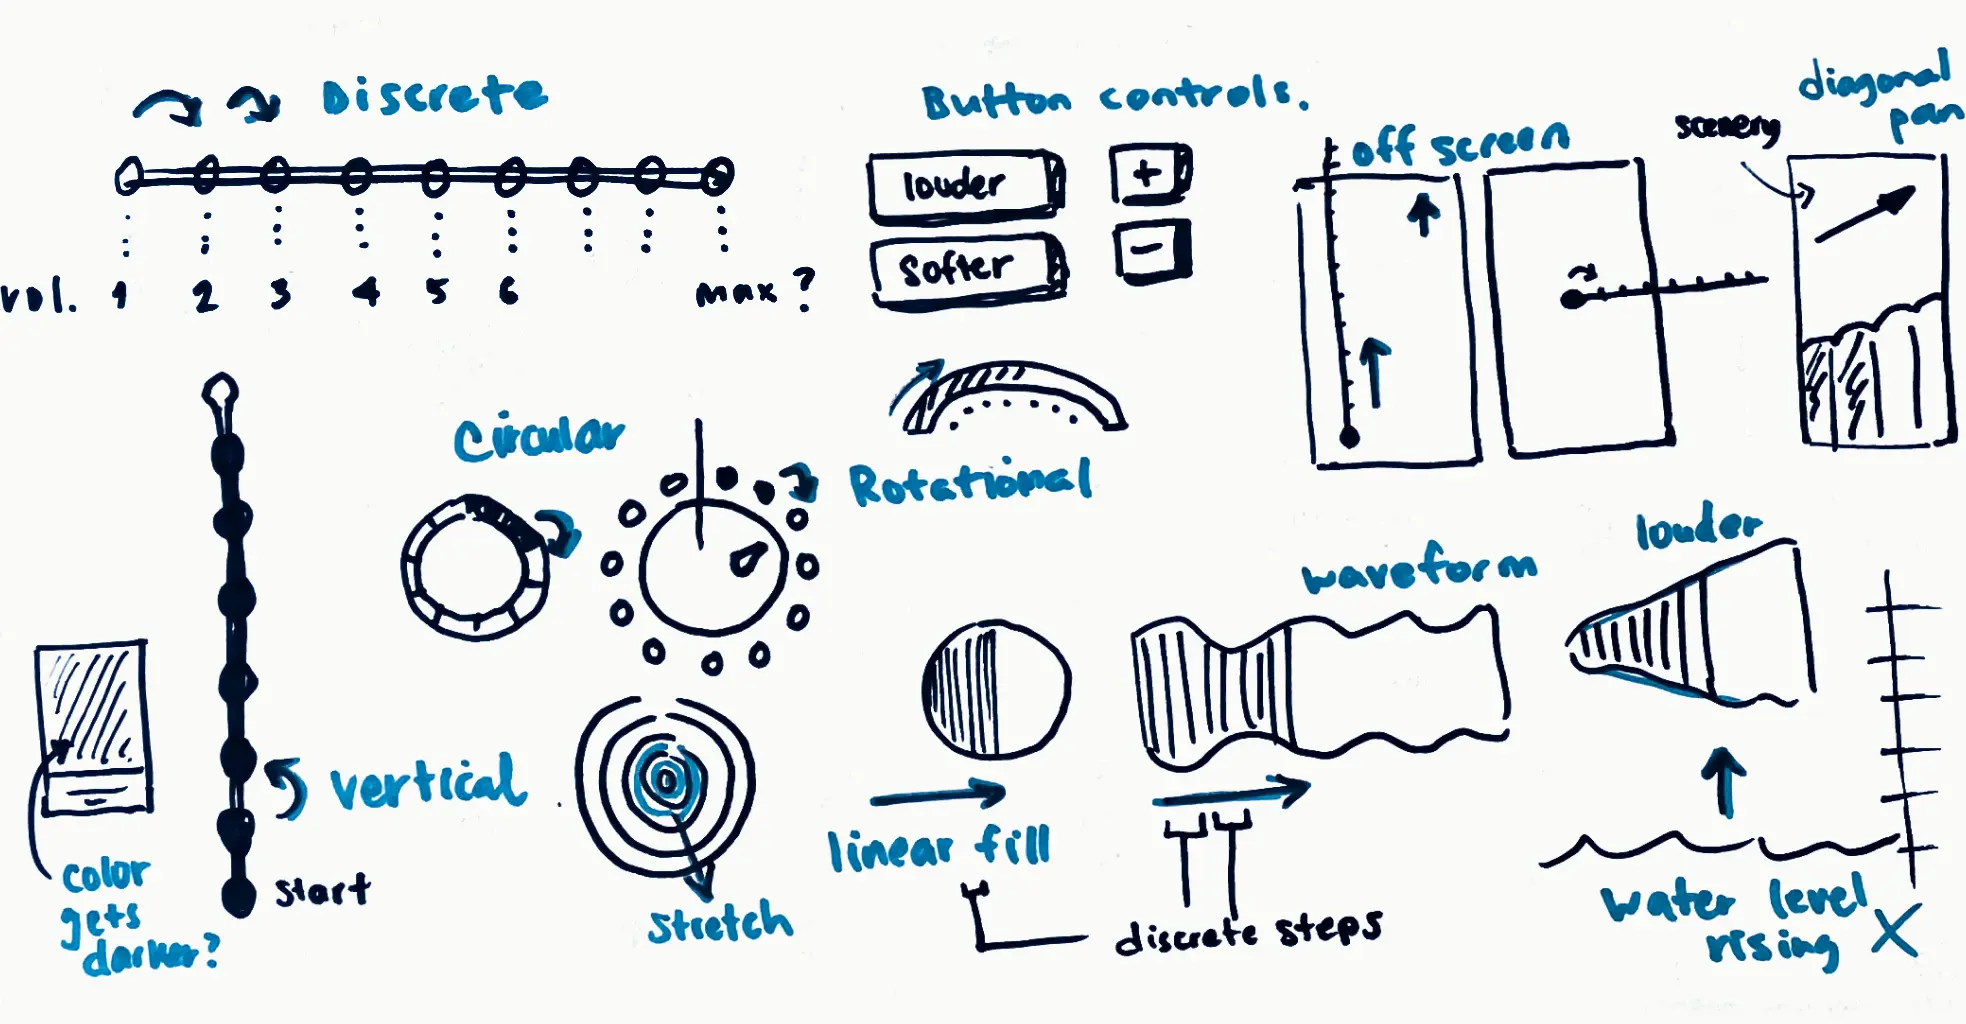 Discrete
vol. 1 2 3 4 5 6 max ?
Button controls.
louder
+
softer
-
off screen
scenery
diagonal
pan
circular
Rotational
vertical
start
color
gets
darker?
stretch
linear fill
waveform
discrete steps
louder
water level
rising X